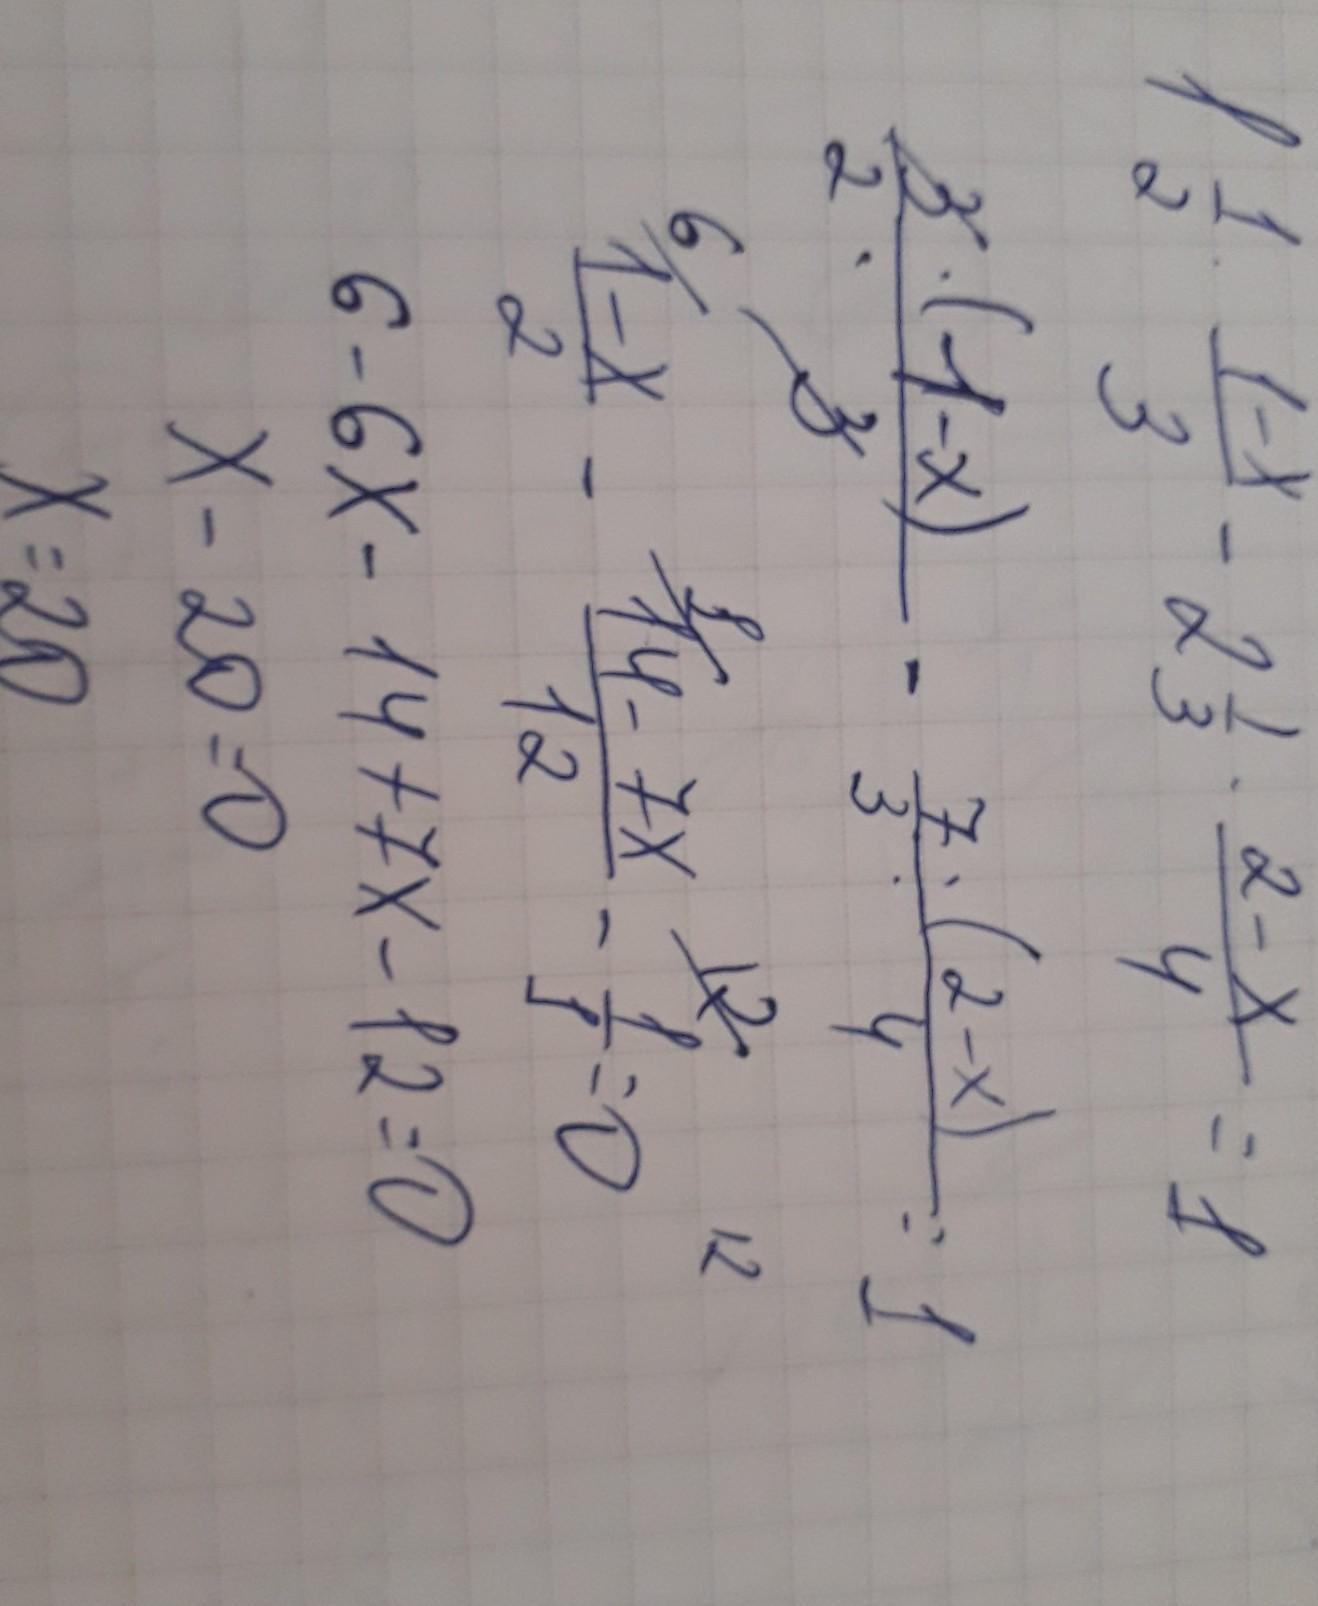 1 1/2 · (1-x)/3 - 2 1/3 · (2-x)/4 = 1
3·(1-x)/(2·3) - 7·(2-x)/(3·4) = 1
6 1 12 12
(1-x)/2 - (14-7x)/12 - 1/1 = 0
6-6x-14+7x-12=0
x-20=0
x=20